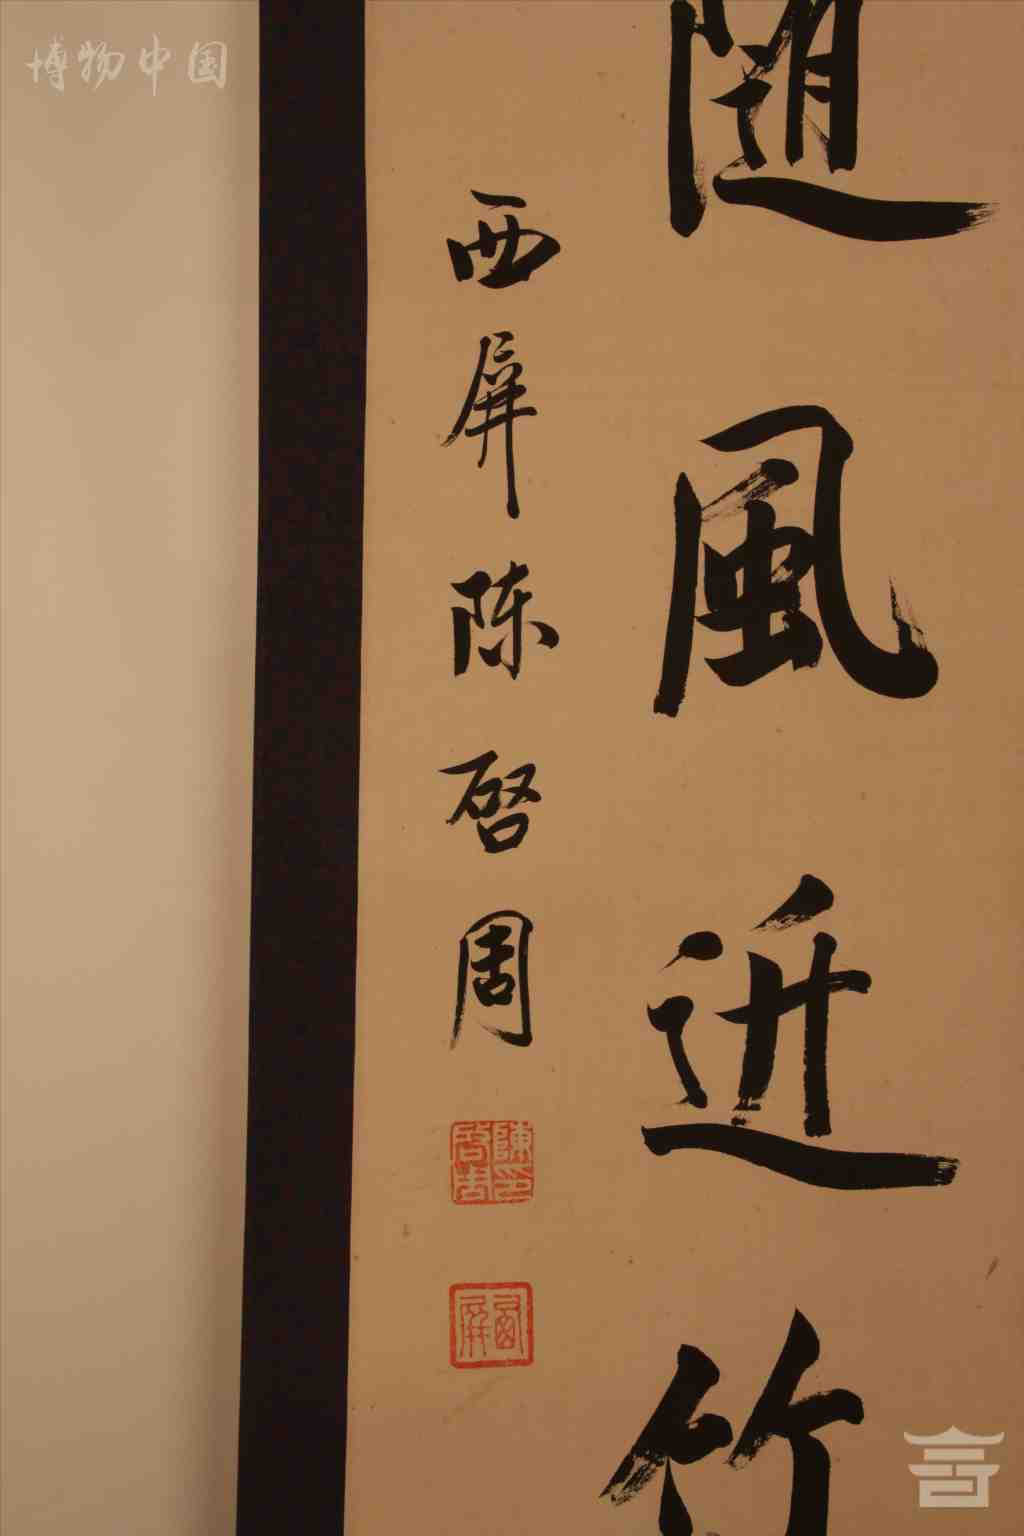 博物中国
随風近竹
西屏陈啓周
陳啓周印
西屏